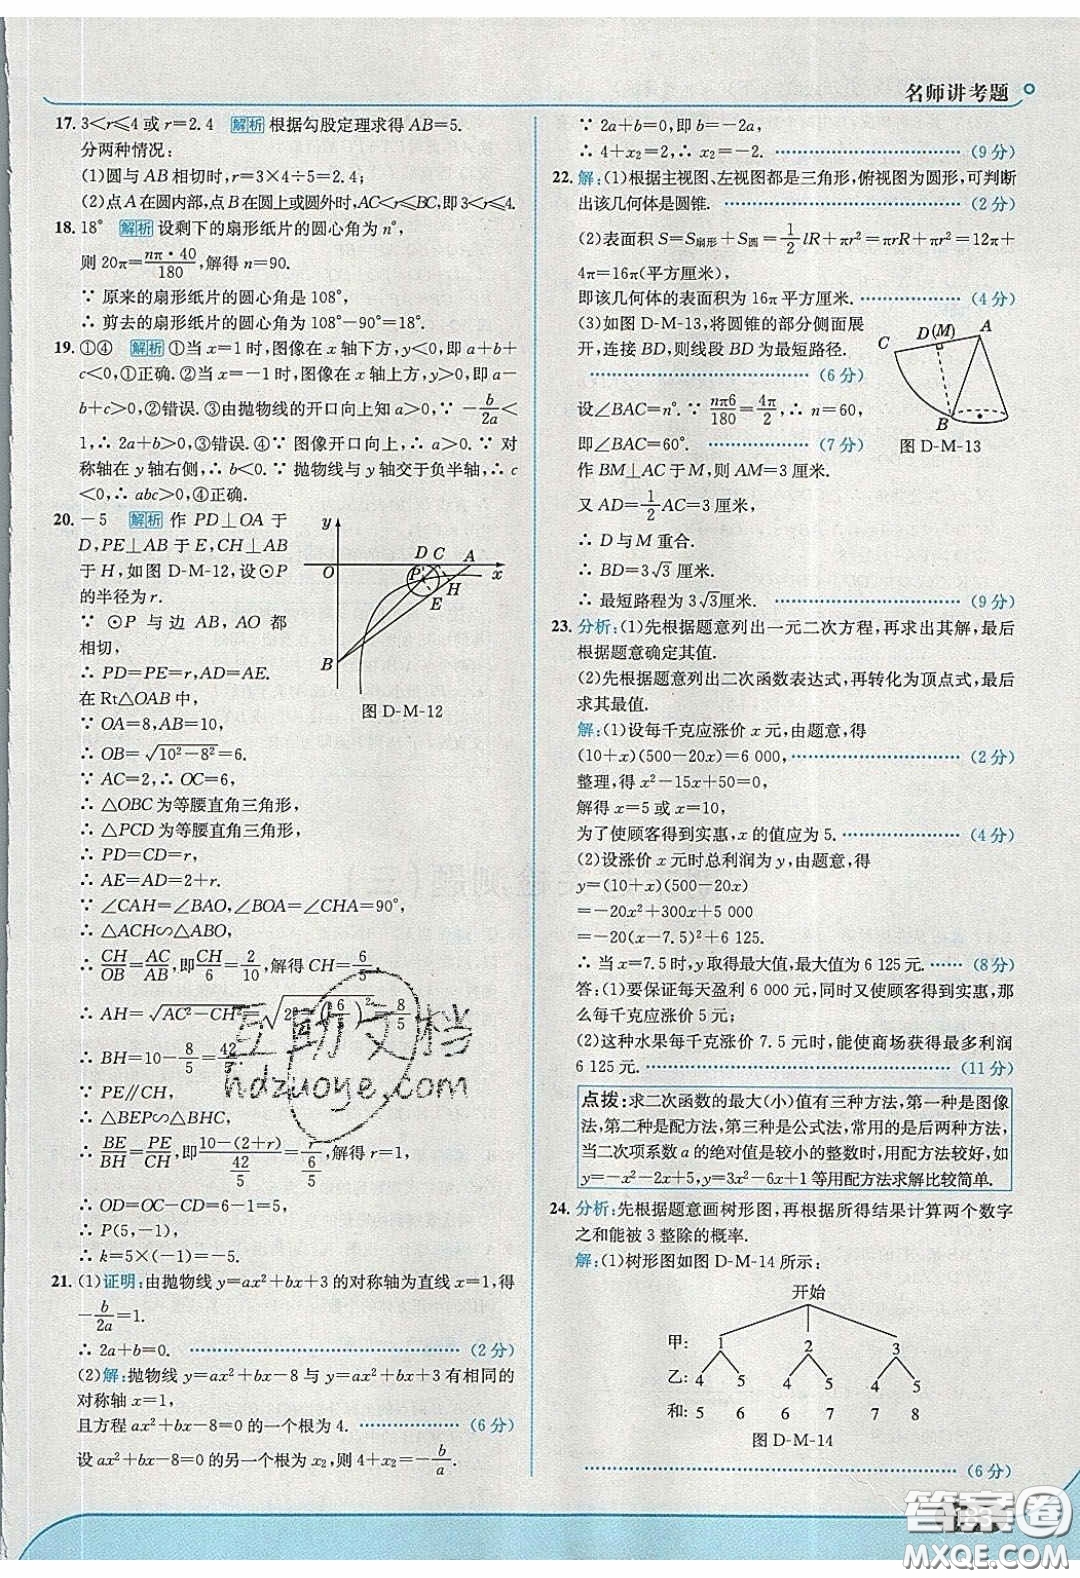 名师讲考题
17. 3<r≤4或r=2.4 解析 根据勾股定理求得AB=5.
分两种情况:
(1)圆与AB相切时,r=3×4÷5=2.4;
(2)点A在圆内部,点B在圆上或圆外时,AC<r≤BC,即3<r≤4.
18. 18° 解析 设剩下的扇形纸片的圆心角为n°,
则20π=nπ·40/180,解得n=90.
∵ 原来的扇形纸片的圆心角是108°,
∴ 剪去的扇形纸片的圆心角为108°-90°=18°.
19. ①④ 解析 ①当x=1时,图像在x轴下方,y<0,即a+b+
c<0,①正确.②当x=-1时,图像在x轴上方,y>0,即a-
b+c>0,②错误.③由抛物线的开口向上知a>0,∵ -b/2a<
1,∴ 2a+b>0,③错误.④∵ 图像开口向上,∴ a>0.∵ 对
称轴在y轴右侧,∴ b<0.∵ 抛物线与y轴交于负半轴,∴ c
<0,∴ abc>0,④正确.
20. -5 解析 作PD⊥OA于
D,PE⊥AB于E,CH⊥AB
于H,如图D-M-12,设⊙P
的半径为r.
∵ ⊙P与边AB,AO都
相切,
∴ PD=PE=r,AD=AE.
在Rt△OAB中,
∵ OA=8,AB=10,
∴ OB=√(10²-8²)=6.
∵ AC=2,∴ OC=6,
∴ △OBC为等腰直角三角形,
∴ △PCD为等腰直角三角形,
∴ PD=CD=r,
∴ AE=AD=2+r.
∵ ∠CAH=∠BAO,∠BOA=∠CHA=90°,
∴ △ACH∽△ABO,
∴ CH/OB=AC/AB,即CH/6=2/10,解得CH=6/5,
∴ AH=√(AC²-CH²)=√(2²-(6/5)²)=8/5,
∴ BH=10-8/5=42/5.
∵ PE∥CH,
∴ △BEP∽△BHC,
∴ BE/BH=PE/CH,即(10-(2+r))/(42/5)=r/(6/5),解得r=1,
∴ OD=OC-CD=6-1=5,
∴ P(5,-1),
∴ k=5×(-1)=-5.
y
D C A
O P x
H
E
B
图D-M-12
21. (1)证明:由抛物线y=ax²+bx+3的对称轴为直线x=1,得
-b/2a=1.
∴ 2a+b=0. (2分)
(2)解:抛物线y=ax²+bx-8与y=ax²+bx+3有相同的
对称轴x=1,
且方程ax²+bx-8=0的一个根为4. (6分)
设ax²+bx-8=0的另一个根为x₂,则4+x₂=-b/a.
∵ 2a+b=0,即b=-2a,
∴ 4+x₂=2,∴ x₂=-2. (9分)
22. 解:(1)根据主视图、左视图都是三角形,俯视图为圆形,可判断
出该几何体是圆锥. (2分)
(2)表面积S=S扇形+S圆=1/2lR+πr²=πRr+πr²=12π+
4π=16π(平方厘米),
即该几何体的表面积为16π平方厘米. (4分)
(3)如图D-M-13,将圆锥的部分侧面展
开,连接BD,则线段BD为最短路径.
(6分)
设∠BAC=n°.∵ nπ6/180=4π/2,∴ n=60,
即∠BAC=60°. (7分)
作BM⊥AC于M,则AM=3厘米.
又AD=1/2AC=3厘米,
∴ D与M重合.
∴ BD=3√3厘米.
∴ 最短路程为3√3厘米. (9分)
C D(M) A
B
图D-M-13
23. 分析:(1)先根据题意列出一元二次方程,再求出其解,最后
根据题意确定其值.
(2)先根据题意列出二次函数表达式,再转化为顶点式,最后
求其最值.
解:(1)设每千克应涨价x元,由题意,得
(10+x)(500-20x)=6 000, (2分)
整理,得x²-15x+50=0,
解得x=5或x=10,
为了使顾客得到实惠,x的值应为5. (4分)
(2)设涨价x元时总利润为y,由题意,得
y=(10+x)(500-20x)
=-20x²+300x+5 000
=-20(x-7.5)²+6 125.
∴ 当x=7.5时,y取得最大值,最大值为6 125元. (8分)
答:(1)要保证每天盈利6 000元,同时又使顾客得到实惠,那
么每千克应涨价5元;
(2)这种水果每千克涨价7.5元时,能使商场获得最多利润
6 125元. (11分)
点拨:求二次函数的最大(小)值有三种方法,第一种是图像
法,第二种是配方法,第三种是公式法,常用的是后两种方法,
当二次项系数a的绝对值是较小的整数时,用配方法较好,如
y=-x²-2x+5,y=3x²-6x+1等用配方法求解比较简单.
24. 分析:先根据题意画树形图,再根据所得结果计算两个数字
之和能被3整除的概率.
解:(1)树形图如图D-M-14所示:
开始
甲: 1 2 3
乙: 4 5 4 5 4 5
和: 5 6 6 7 7 8
图D-M-14
(6分)
互助文档
hdzuoye.com
答案圈
MXQE.COM